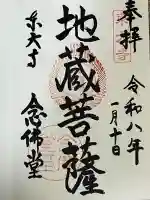 奉拝
令和八年
一月十日
地蔵菩薩
東大寺
念佛堂